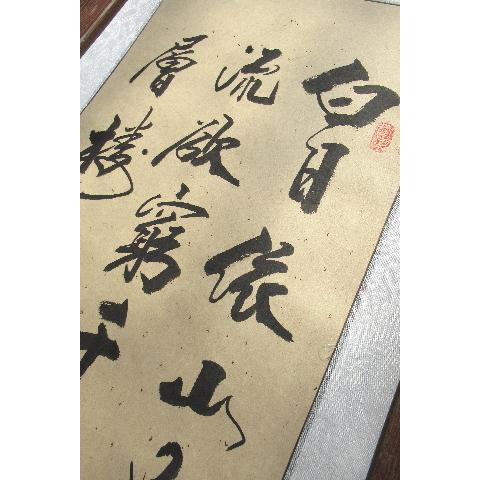 白日依山
流欲窮千
層樓